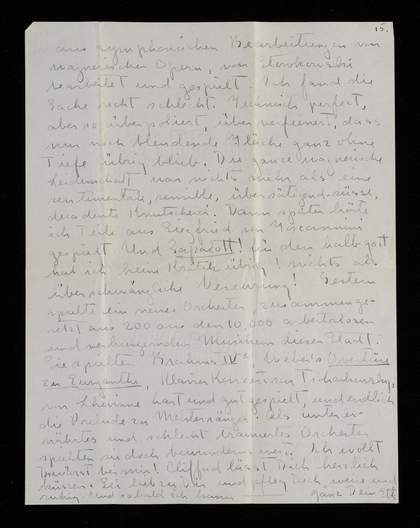 15.
aus symphonischen Bearbeitungen von
wagnerischen Opern, von Stowkowski
bearbeitet und gespielt. Ich fand die
Sache recht schlecht. Technisch perfect,
aber so überpoliert, überverfeinert, dass
nur noch blendende Fläche ganz ohne
Tiefe übrig blieb. Die ganze wagnerische
Leidenschaft war nichts mehr als eine
sentimentale, sensible, übersätigend-süsse,
decadente Knutscherei. Dann später hörte
ich Teile aus Siegfried von Toscannini
gespielt und! Für den Halbgott
hab ich keine Kritik übrig! nichts als
überschwängliche Verehrung! Gestern
spielte ein neues Orchester zusammenge-
setzt aus 200 aus den 10,000 arbeitslosen
und verhungernden Musikern dieser Stadt.
Sie spielten Brahms IVte, Weber's Ouvertüre
zu Euryanthe, Klavier Konzert von Tschaikowsky,
von Lhevinne hart und gut gespielt, und endlich
die Prelude zu Meistersänger. Als unter er-
nährtes und schlecht trainiertes Orchester
spielten sie doch bewundernswert. Ich wollt
Du wärst bei mir! Clifford lässt Dich herzlich
küssen. Sie und pfleg Dich, weine und
ruhig und sobald ich kann
ganz Dein